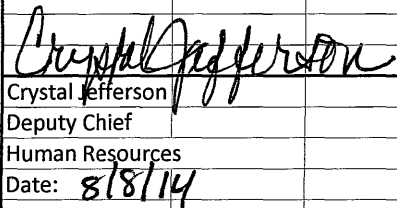 Crystal Jefferson
Crystal Jefferson
Deputy Chief
Human Resources
Date: 8/8/14